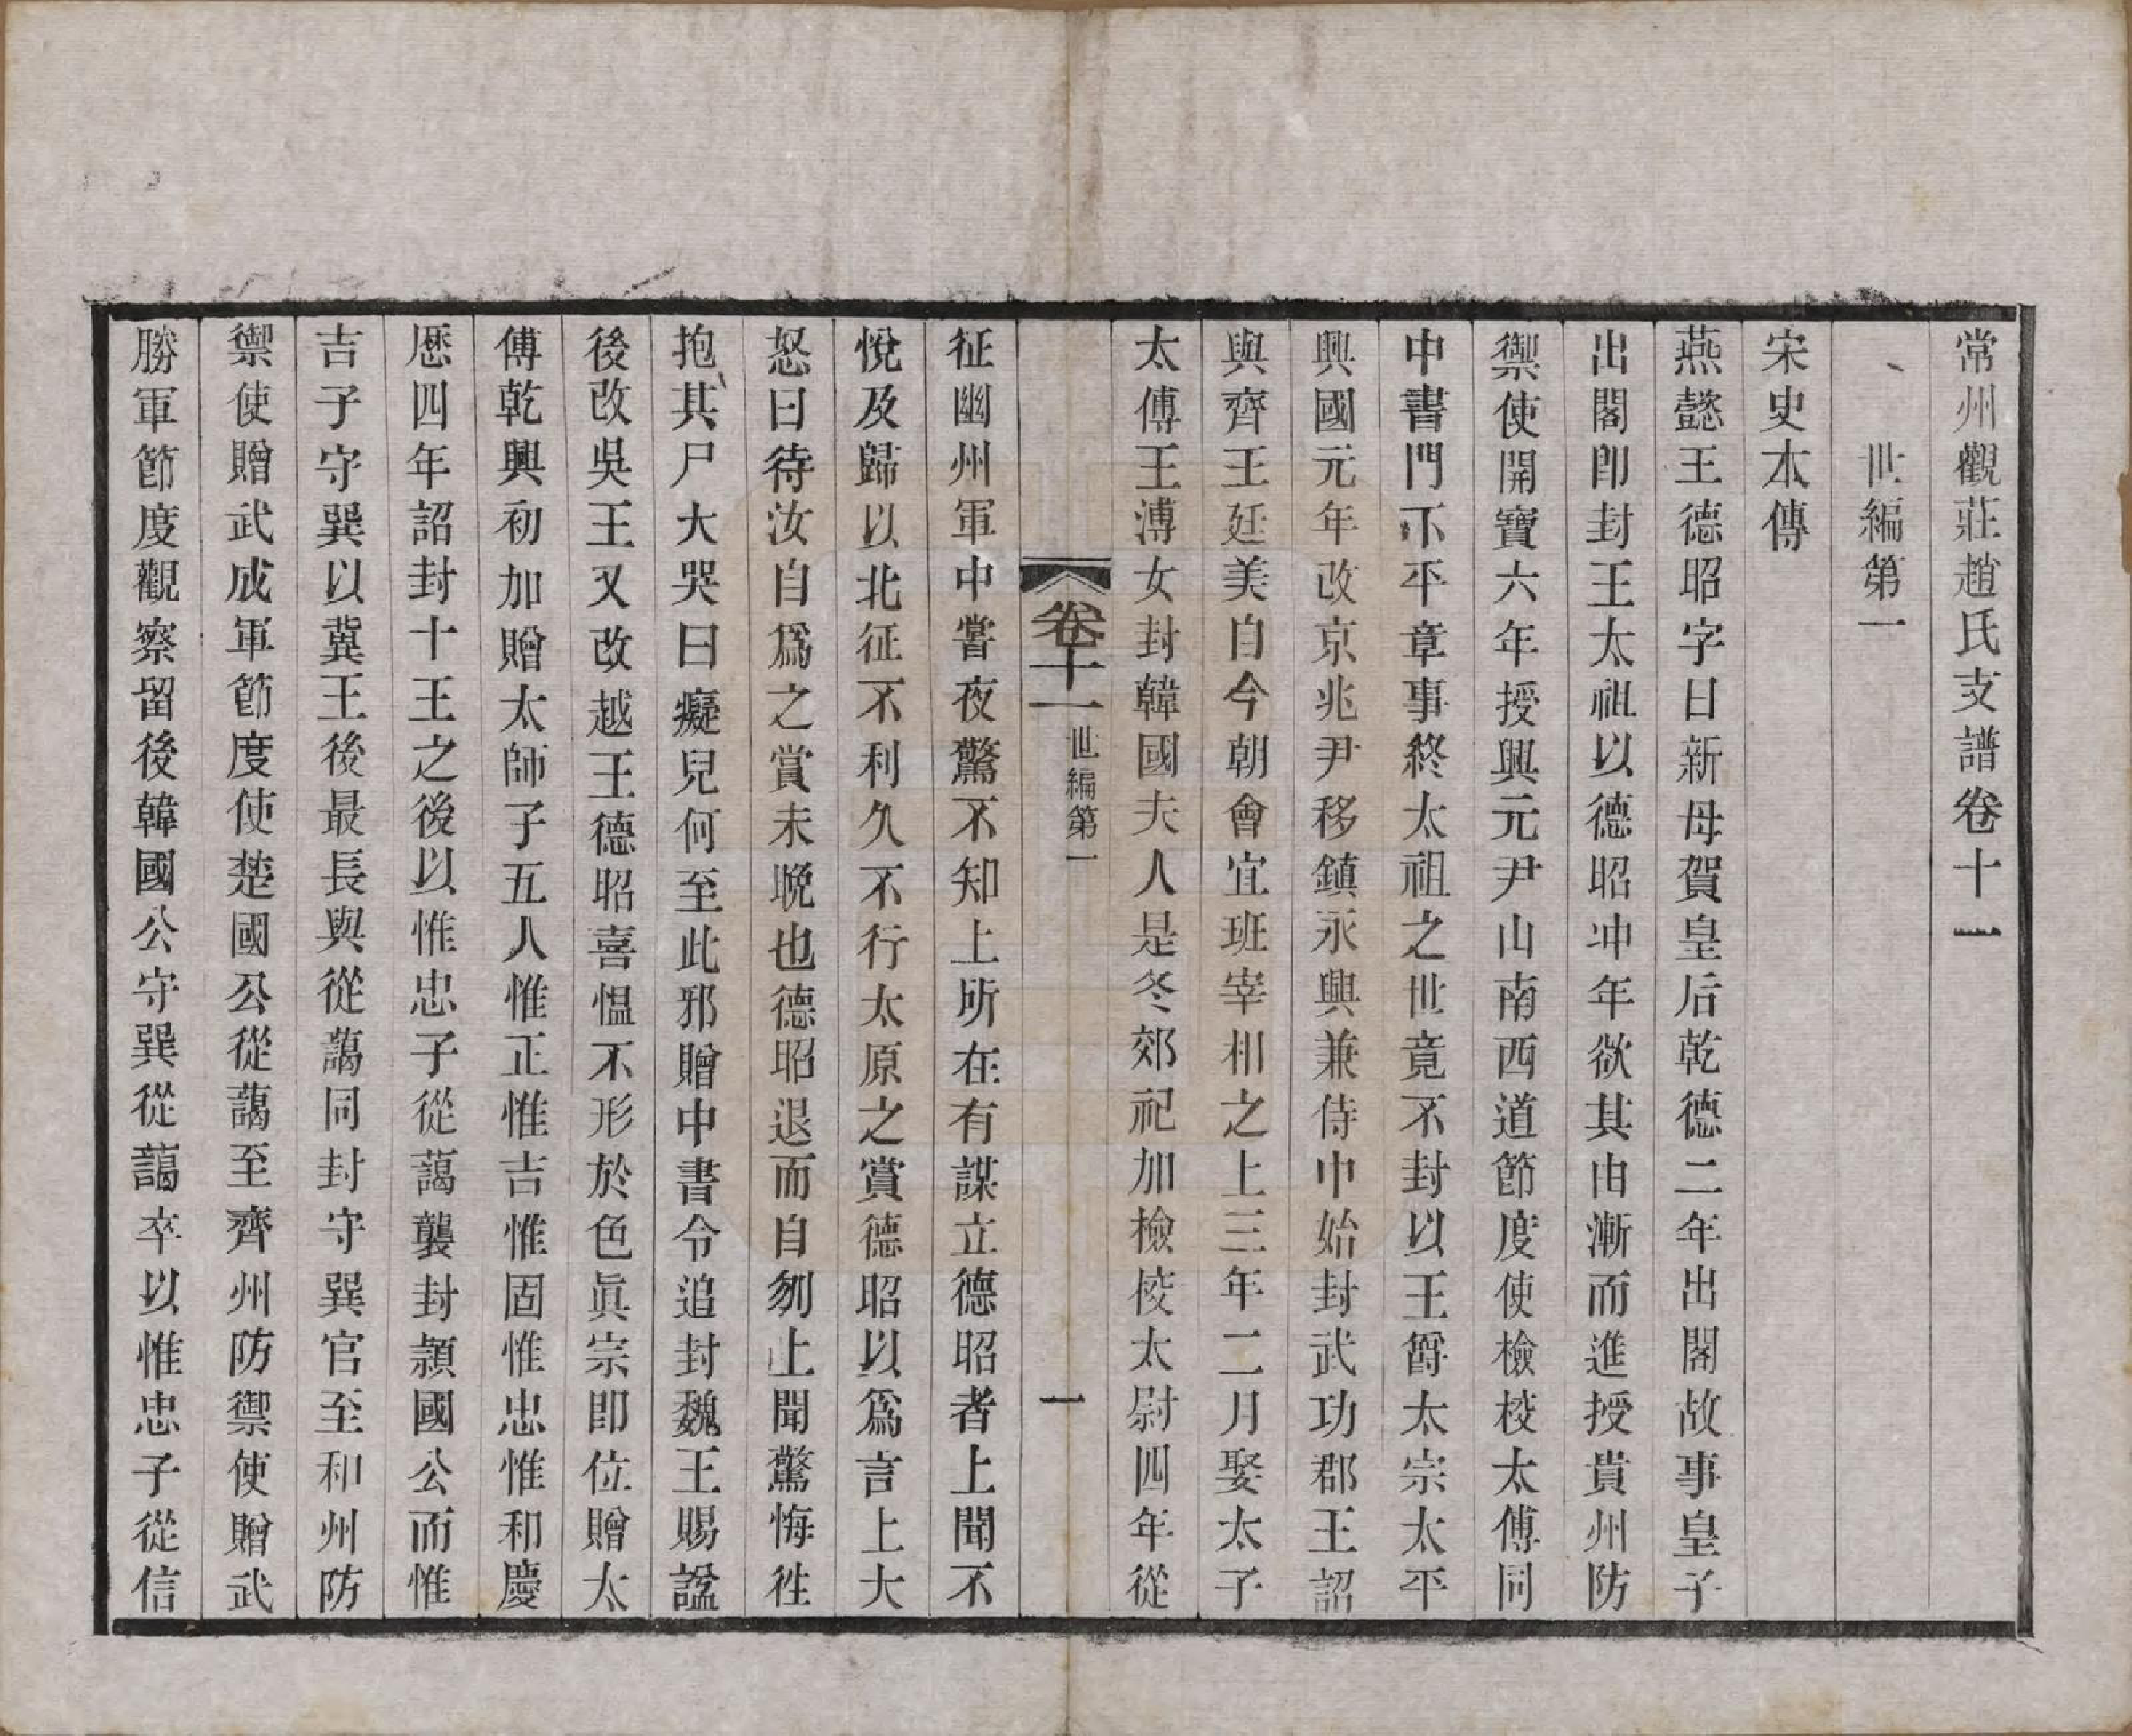 常州觀莊趙氏支譜卷十一
世編第一
宋史本傳
燕懿王德昭字日新母賀皇后乾德二年出閣故事皇子
出閣即封王太祖以德昭冲年欲其由漸而進授貴州防
禦使開寶六年授興元尹山南西道節度使檢校太傅同
中書門下平章事終太祖之世竟不封以王爵太宗太平
興國元年改京兆尹移鎮永興兼侍中始封武功郡王詔
與齊王廷美自今朝會宜班宰相之上三年二月娶太子
太傅王溥女封韓國夫人是冬郊祀加檢校太尉四年從
卷十一
世編第一
一
征幽州軍中嘗夜驚不知上所在有謀立德昭者上聞不
悅及歸以北征不利久不行太原之賞德昭以爲言上大
怒曰待汝自爲之賞未晚也德昭退而自刎上聞驚悔往
抱其尸大哭曰癡兒何至此邪贈中書令追封魏王賜諡
後改吳王又改越王德昭喜慍不形於色眞宗即位贈太
傅乾興初加贈太師子五人惟正惟吉惟固惟忠惟和慶
厯四年詔封十王之後以惟忠子從藹襲封潁國公而惟
吉子守巽以冀王後最長與從藹同封守巽官至和州防
禦使贈武成軍節度使楚國公從藹至齊州防禦使贈武
勝軍節度觀察留後韓國公守巽從藹卒以惟忠子從信